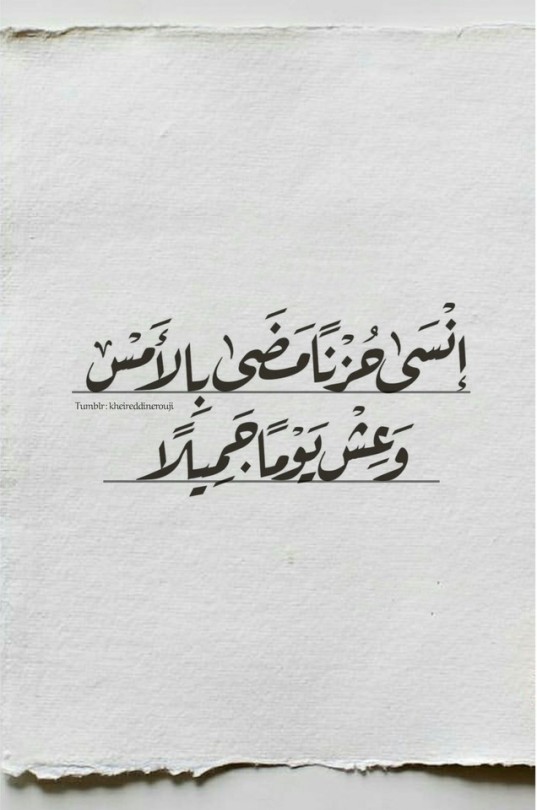 إِنْسَى حُزْنًا مَضَى بِالأَمْسْ
Tumblr: kheireddinerouji
وَعِشْ يَوْمًا جَمِيلًا